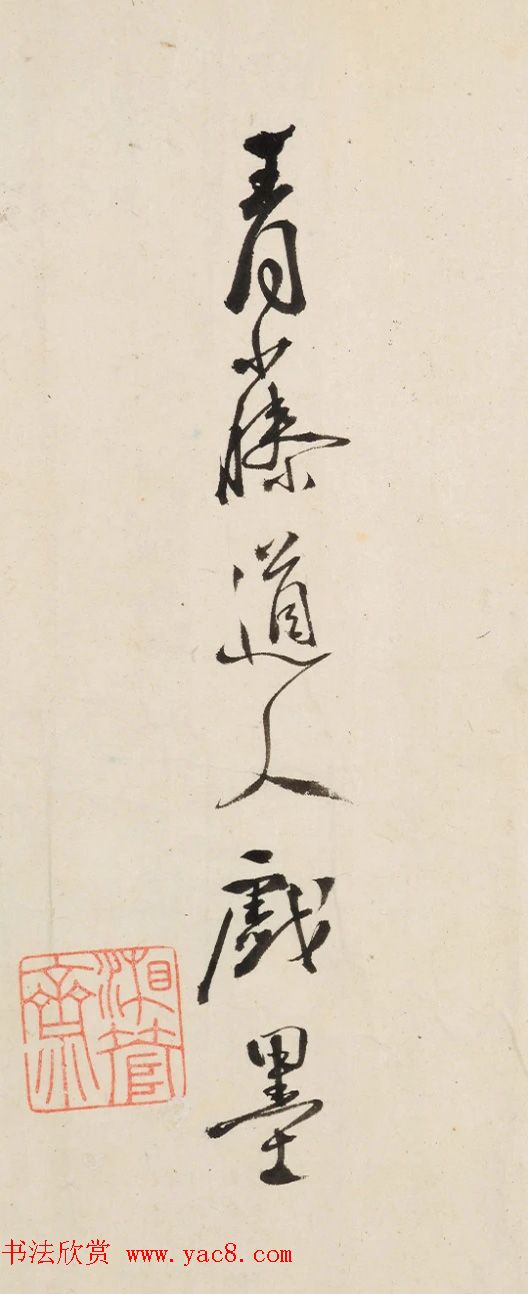 青藤道人戯墨
湘管齋
书法欣赏 www.yac8.com